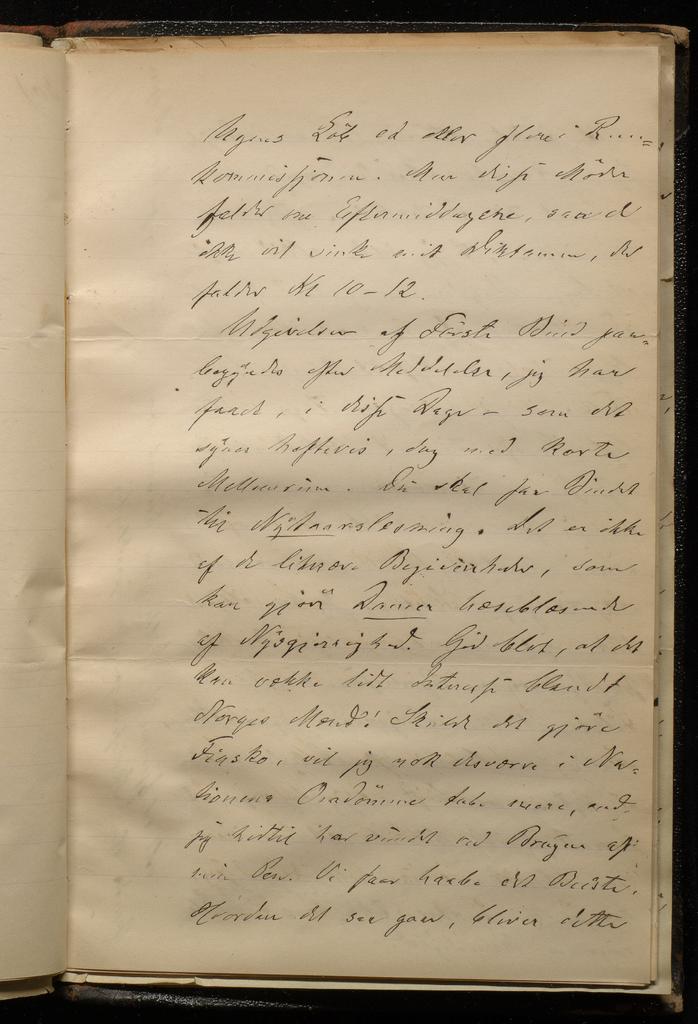 Ugens Löb ed eller flere i R
kommissjonen. Men disse Möder
falder om Eftermiddagene, saa d
ikke vil vinke mit Diktamen, der
falder Kl 10-12.
Udgivelsen af Förste Bind paa=
begyndes efter Meddelelse, jeg har
faaet, i disse Dage - som det
synes heftevis, dog med korte
Mellemrum. Du skal faa Bindet
til Nytaarslesning. Det er ikke
af de literære Begivenheder, som
kan gjöre Damer hæseblæsende
af Nysgjerrighed. Gid blot, at det
kan vække lidt Interesse blandt
Norges Mænd! Skulde det gjöre
Fiasko, vil jeg nok desværre i Na=
tionens Omdömme tabe mere, end
jeg hidtil har vundet ved Brugen af
min Pen. Vi faar haabe det Bedste.
Hvordan det saa gaar, bliver dette